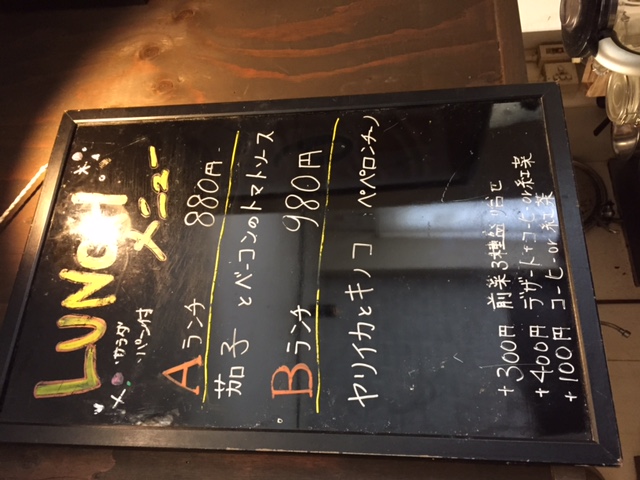 LUNCH
メニュー
サラダ
パン付
Aランチ 880円
茄子とベーコンのトマトソース
Bランチ 980円
ヤリイカとキノコ ペペロンチノ
+300円 前菜3種盛り合せ
+400円 デザート+コーヒーor紅茶
+100円 コーヒーor紅茶